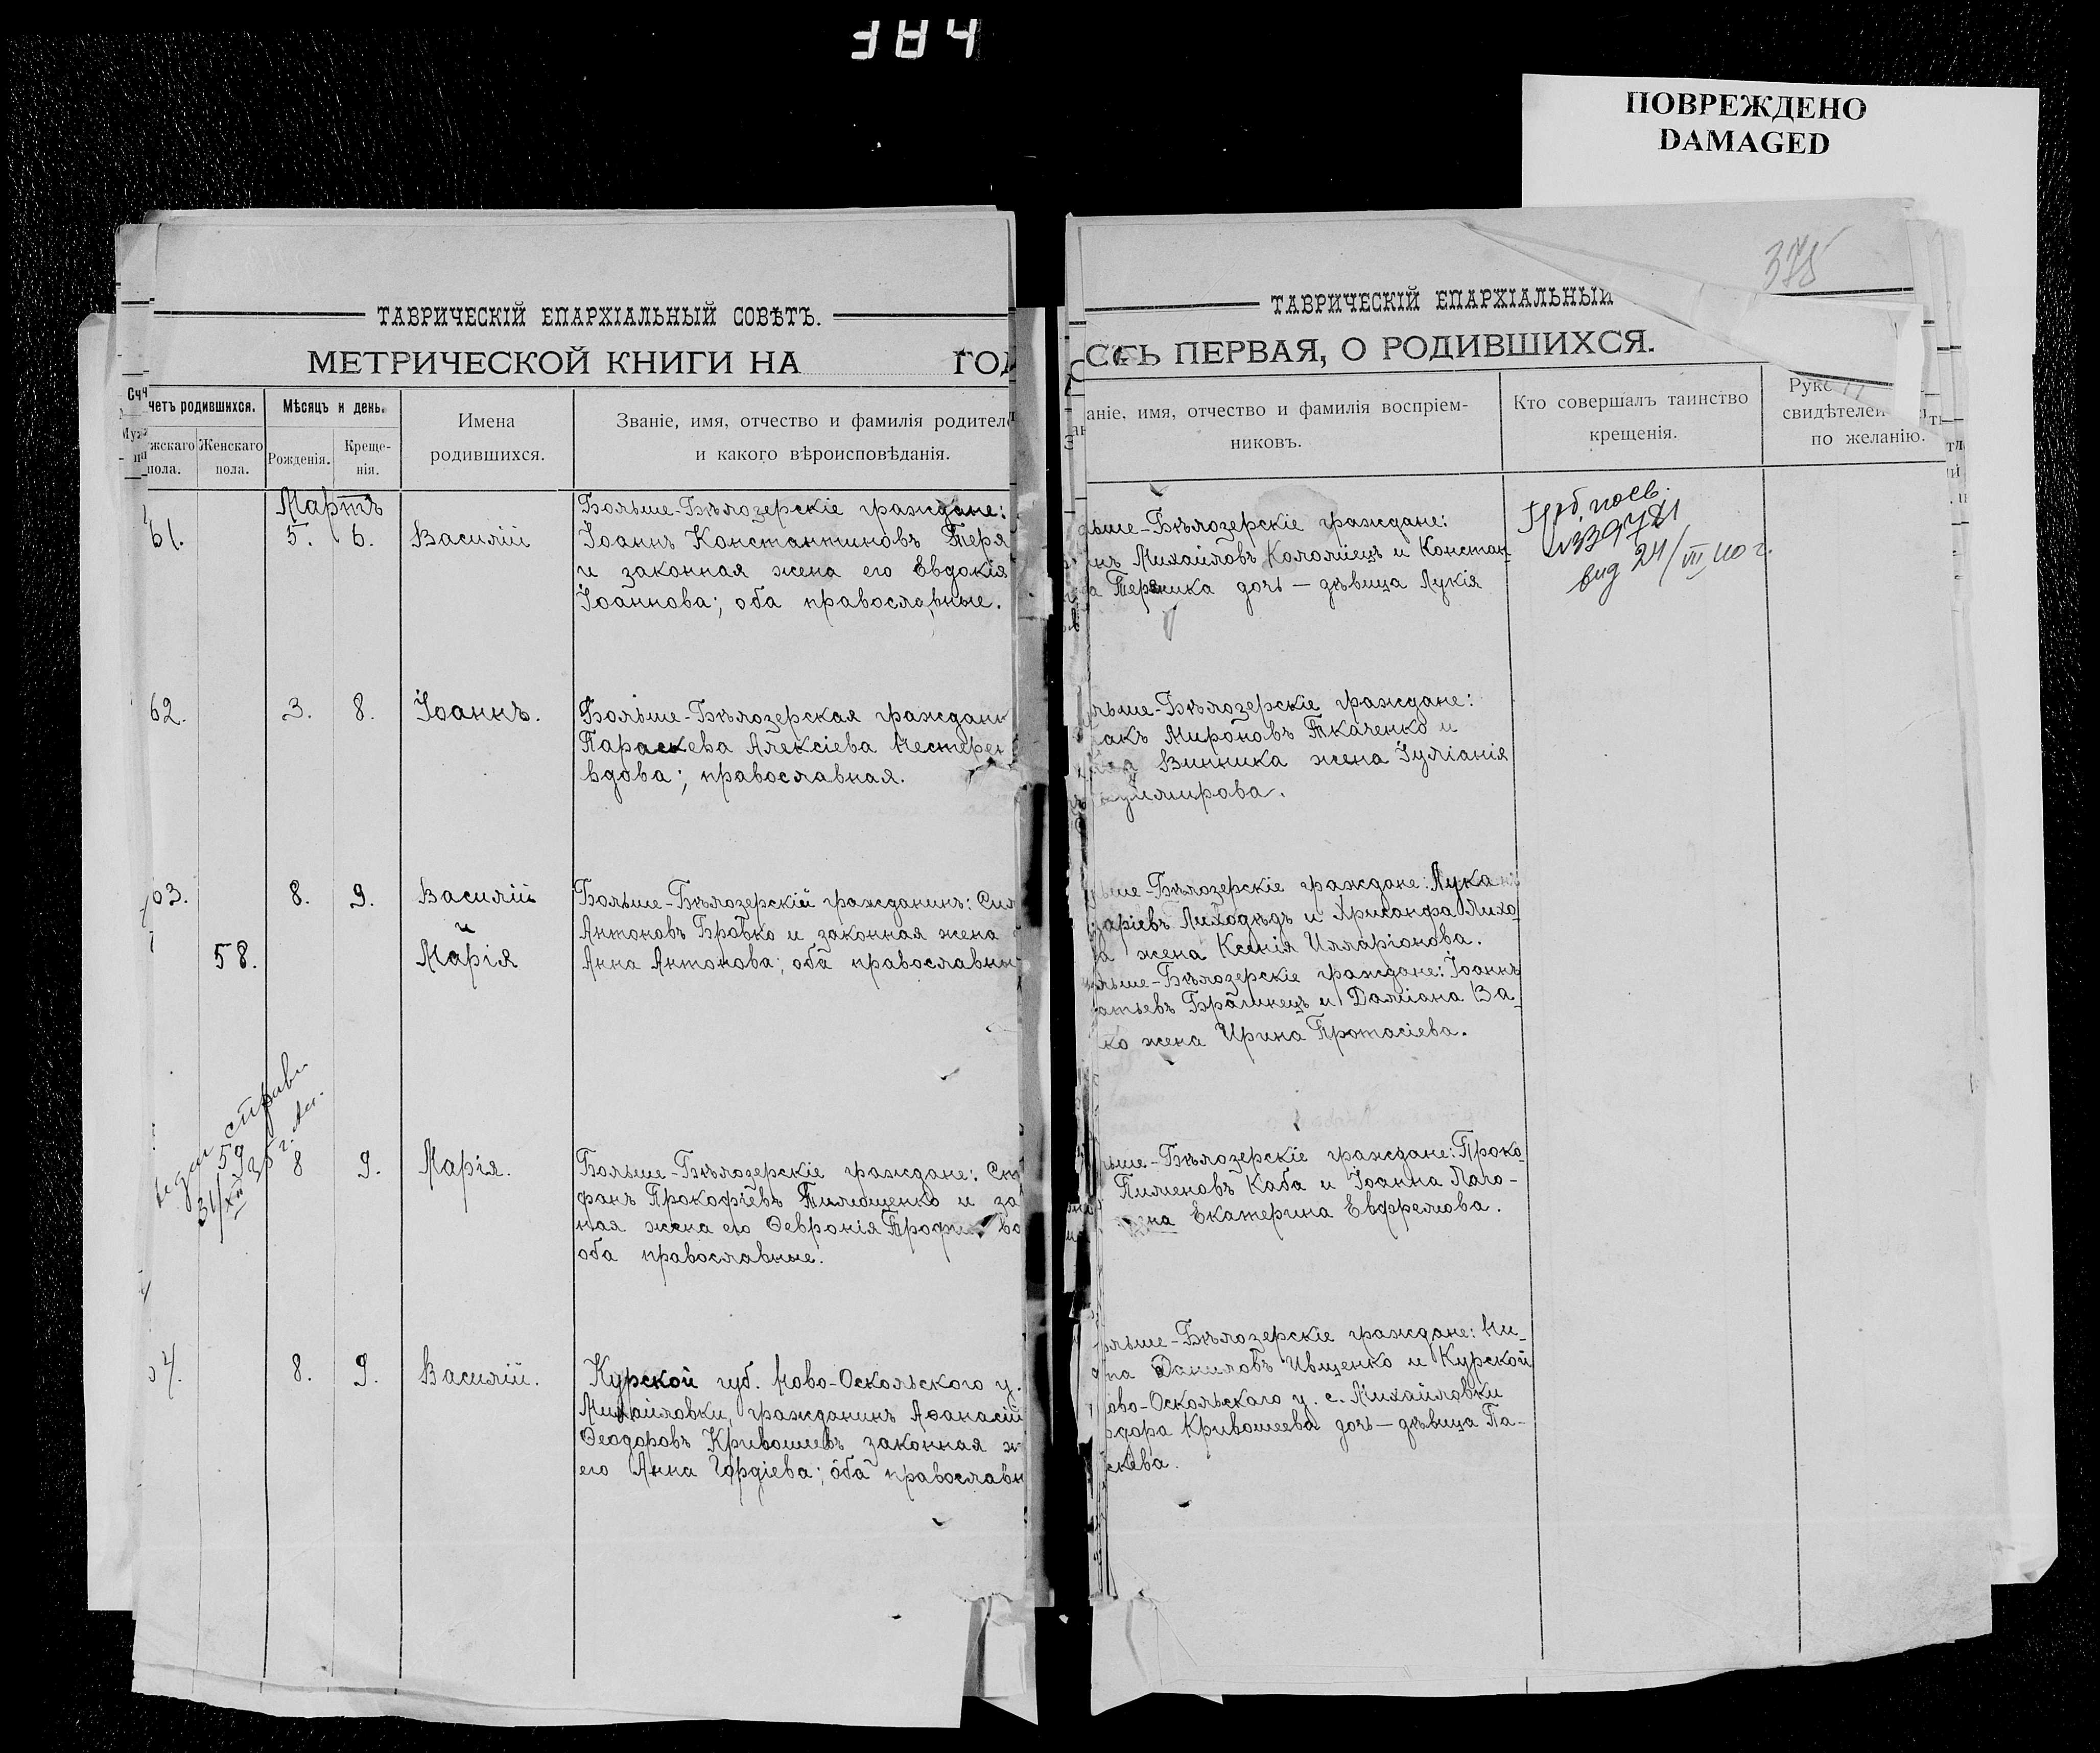 ПОВРЕЖДЕНО
DAMAGED
375
ТАВРИЧЕСКІЙ ЕПАРХІАЛЬНЫЙ СОВѢТЪ.
МЕТРИЧЕСКОЙ КНИГИ НА ГОД
четъ родившихся.
Мѣсяцъ и день.
Имена
родившихся.
Званіе, имя, отчество и фамилія родител
и какого вѣроисповѣданія.
жскаго
пола.
Женскаго
пола.
Рожденія.
Креще-
нія.
Мартъ
61. 5. 6. Василій
Больше-Бѣлозерскіе граждане:
Іоаннъ Константиновъ Теря
и законная жена его Евдокія
Іоаннова; оба православные.
62. 3. 8. Іоаннъ.
Больше-Бѣлозерская граждан
Параскева Алексіева Нестерен
вдова; православная.
63. 8. 9. Василій
и
58. Марія
Больше-Бѣлозерскій гражданинъ: Сил
Антоновъ Бровко и законная жена
Анна Антонова; оба православны
справ
59 8 9. Марія.
31/XII 35 г.
Больше-Бѣлозерскіе граждане: Сте
фанъ Прокофіевъ Тимошенко и за
ная жена его Февронія Трофи во
оба православные.
4. 8. 9. Василій.
Курской губ. Ново-Оскольского у.
Михайловки, гражданинъ Афанасій
Феодоровъ Кривошеевъ законная ж
его Анна Гордіева; оба православн
ТАВРИЧЕСКІЙ ЕПАРХІАЛЬНЫЙ
СТЬ ПЕРВАЯ, О РОДИВШИХСЯ.
аніе, имя, отчество и фамилія воспріем-
никовъ.
Кто совершалъ таинство
крещенія.
Руко
свидѣтелей
по желанію.
льше-Бѣлозерскіе граждане:
нъ Михайловъ Коломіецъ и Констан-
а Терника дочь — дѣвица Лукія
вид 24/VII 40 г.
льше-Бѣлозерскіе граждане:
акъ Мироновъ Ткаченко и
Винника жена Іуліанія
димирова.
ьше-Бѣлозерскіе граждане: Лука
аріевъ Лиходѣдъ и Хрисанфа Лихо-
а жена Ксенія Илларіонова.
льше-Бѣлозерскіе граждане: Іоаннъ
атьевъ Брагинецъ и Даміана За-
ко жена Ирина Протасіева.
ьше-Бѣлозерскіе граждане: Проко-
Пименовъ Каба и Іоанна Лаго-
ена Екатерина Ефремова.
льше-Бѣлозерскіе граждане: Ни-
на Даниловъ Ивщенко и Курской
ово-Оскольскаго у. с. Михайловки
одора Кривошеева дочь — дѣвица Па-
скева.